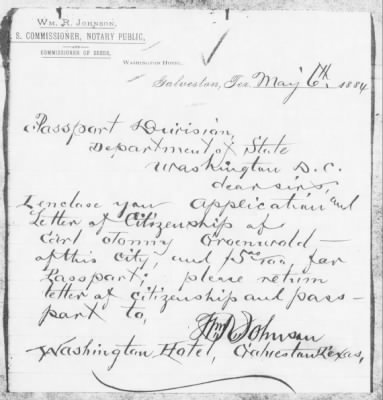 Wm. R. Johnson,
S. Commissioner, Notary Public,
—AND—
Commissioner of Deeds,
Washington Hotel.
Galveston, Tex. May 6th. 1884
Passport Division,
Department of State
Washington D.C.
dear sirs,
I enclose you application and
Letter of Citizenship of
Carl
of this city, and for
Passport: please return
letter of citizenship and pass-
port to,
Wm R Johnson
Washington Hotel, Galveston Texas,